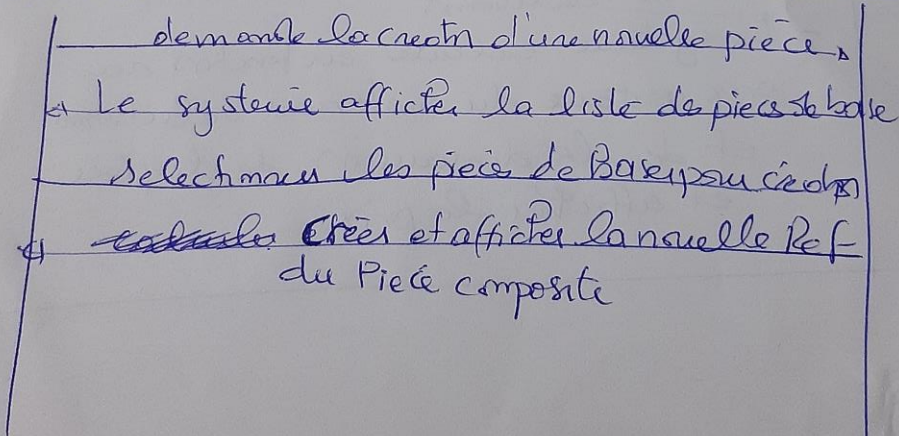 demande la creatn d'une nouvelle pièce
Le systeme afficher la liste de pieces de base
selectionner les piece de Base pour
Créer et afficher la nouvelle Ref
du Piece composite